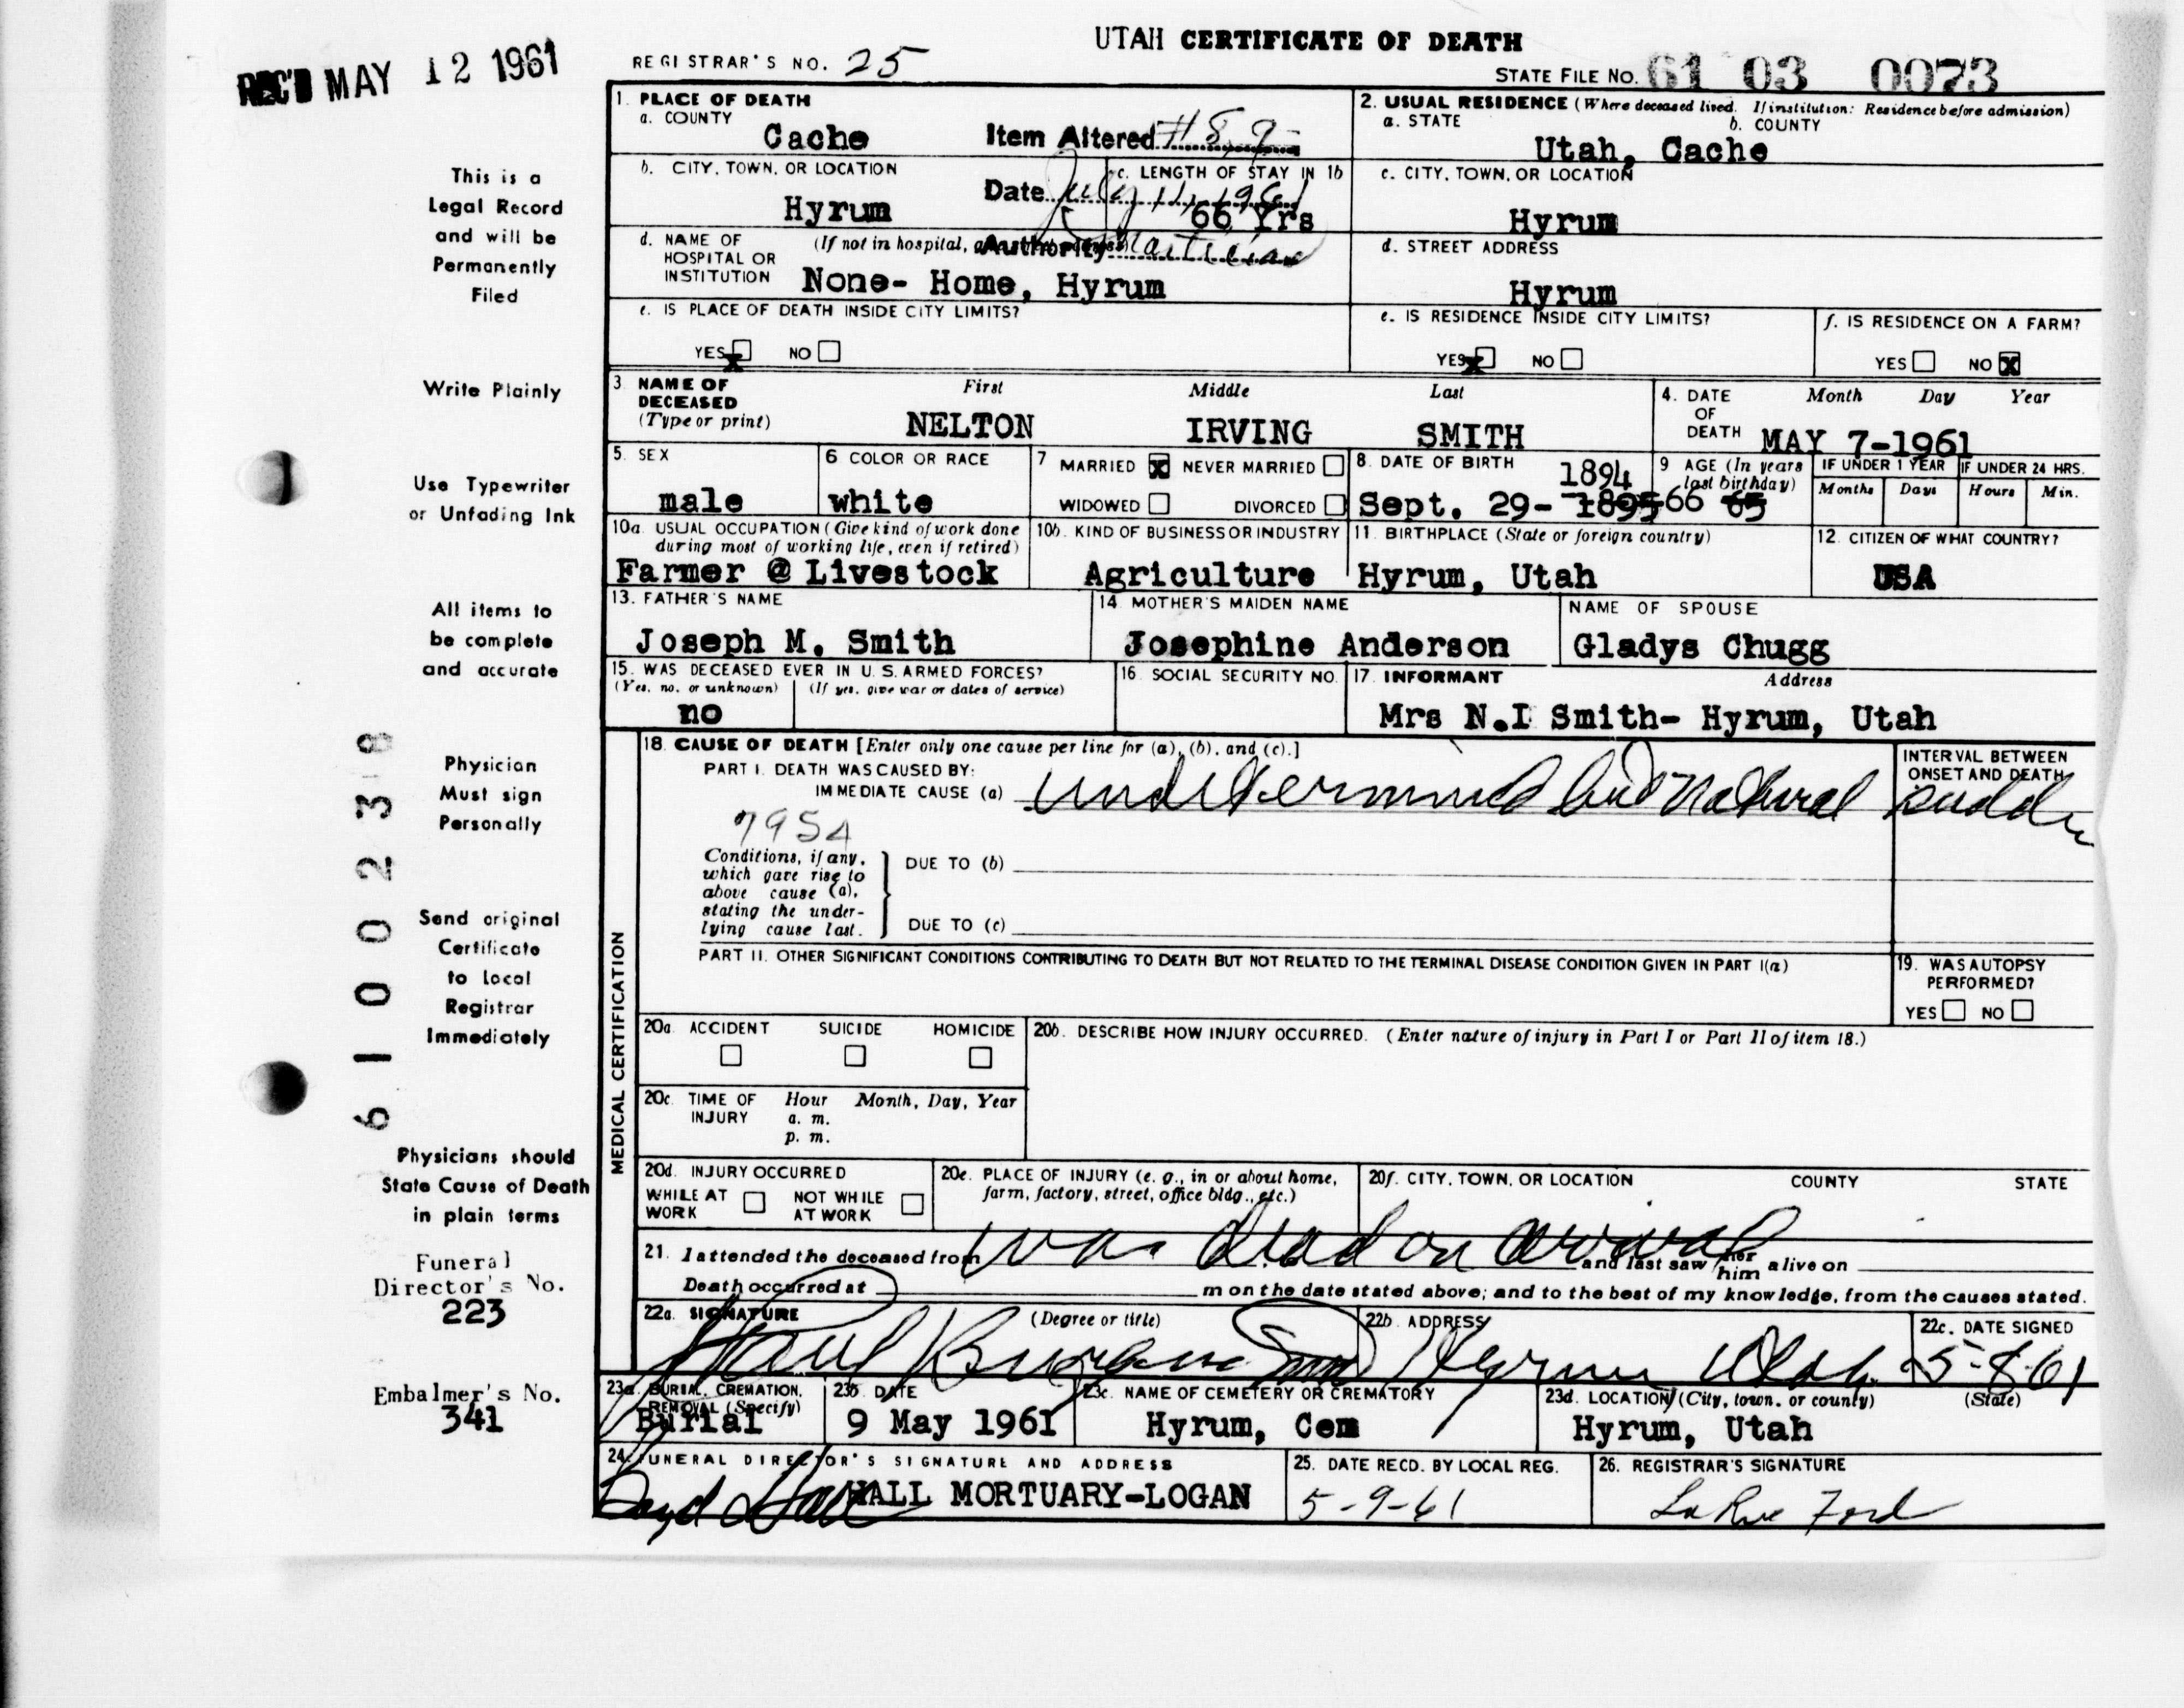 UTAH CERTIFICATE OF DEATH
REC'D MAY 12 1961
REGISTRAR'S NO. 25
STATE FILE NO. 61 03 0073
This is a
Legal Record
and will be
Permanently
Filed
Write Plainly
Use Typewriter
or Unfading Ink
All items to
be complete
and accurate
Physician
Must sign
Personally
Send original
Certificate
to Local
Registrar
Immediately
Physicians should
State Cause of Death
in plain terms
Funeral
Director's No.
223
Embalmer's No.
341
6100238
1. PLACE OF DEATH
a. COUNTY
Cache
Item Altered # 8, 9
2. USUAL RESIDENCE (Where deceased lived. If institution: Residence before admission)
a. STATE b. COUNTY
Utah, Cache
b. CITY, TOWN, OR LOCATION
Hyrum
Date July 11, 1961
c. LENGTH OF STAY IN 1b
66 Yrs
c. CITY, TOWN, OR LOCATION
Hyrum
d. NAME OF HOSPITAL OR INSTITUTION
(If not in hospital,
Authority
None- Home, Hyrum
d. STREET ADDRESS
Hyrum
e. IS PLACE OF DEATH INSIDE CITY LIMITS?
YES x NO
e. IS RESIDENCE INSIDE CITY LIMITS?
YES x NO
f. IS RESIDENCE ON A FARM?
YES NO X
3. NAME OF DECEASED (Type or print)
First Middle Last
NELTON IRVING SMITH
4. DATE OF DEATH Month Day Year
MAY 7-1961
5. SEX
male
6 COLOR OR RACE
white
7 MARRIED X NEVER MARRIED
WIDOWED DIVORCED
8. DATE OF BIRTH
1894
Sept. 29- 1895
9 AGE (In years last birthday)
66 65
IF UNDER 1 YEAR IF UNDER 24 HRS.
Months Days Hours Min.
10a. USUAL OCCUPATION (Give kind of work done during most of working life, even if retired)
Farmer @ Livestock
10b. KIND OF BUSINESS OR INDUSTRY
Agriculture
11. BIRTHPLACE (State or foreign country)
Hyrum, Utah
12. CITIZEN OF WHAT COUNTRY?
USA
13. FATHER'S NAME
Joseph M. Smith
14. MOTHER'S MAIDEN NAME
Josephine Anderson
NAME OF SPOUSE
Gladys Chugg
15. WAS DECEASED EVER IN U.S. ARMED FORCES?
(Yes, no, or unknown) (If yes, give war or dates of service)
no
16. SOCIAL SECURITY NO.
17. INFORMANT Address
Mrs N.I Smith- Hyrum, Utah
MEDICAL CERTIFICATION
18. CAUSE OF DEATH [Enter only one cause per line for (a), (b), and (c).]
PART I. DEATH WAS CAUSED BY:
IMMEDIATE CAUSE (a) undetermined but natural
INTERVAL BETWEEN ONSET AND DEATH
sudden
7954
Conditions, if any,
which gave rise to
above cause (a),
stating the under-
lying cause last.
DUE TO (b)
DUE TO (c)
PART II. OTHER SIGNIFICANT CONDITIONS CONTRIBUTING TO DEATH BUT NOT RELATED TO THE TERMINAL DISEASE CONDITION GIVEN IN PART I(a)
19. WAS AUTOPSY PERFORMED?
YES NO
20a. ACCIDENT SUICIDE HOMICIDE
20b. DESCRIBE HOW INJURY OCCURRED. (Enter nature of injury in Part I or Part II of item 18.)
20c. TIME OF INJURY Hour Month, Day, Year
a. m.
p. m.
20d. INJURY OCCURRED
WHILE AT WORK NOT WHILE AT WORK
20e. PLACE OF INJURY (e. g., in or about home, farm, factory, street, office bldg., etc.)
20f. CITY, TOWN, OR LOCATION COUNTY STATE
21. I attended the deceased from was dead on arrival and last saw her him alive on
Death occurred at m on the date stated above; and to the best of my knowledge, from the causes stated.
22a. SIGNATURE (Degree or title)
22b. ADDRESS
Hyrum Utah
22c. DATE SIGNED
5-8-61
23a. BURIAL, CREMATION, REMOVAL (Specify)
Burial
23b. DATE
9 May 1961
23c. NAME OF CEMETERY OR CREMATORY
Hyrum, Cem
23d. LOCATION (City, town, or county) (State)
Hyrum, Utah
24. FUNERAL DIRECTOR'S SIGNATURE AND ADDRESS
HALL MORTUARY-LOGAN
25. DATE RECD. BY LOCAL REG.
5-9-61
26. REGISTRAR'S SIGNATURE
LaRue Ford